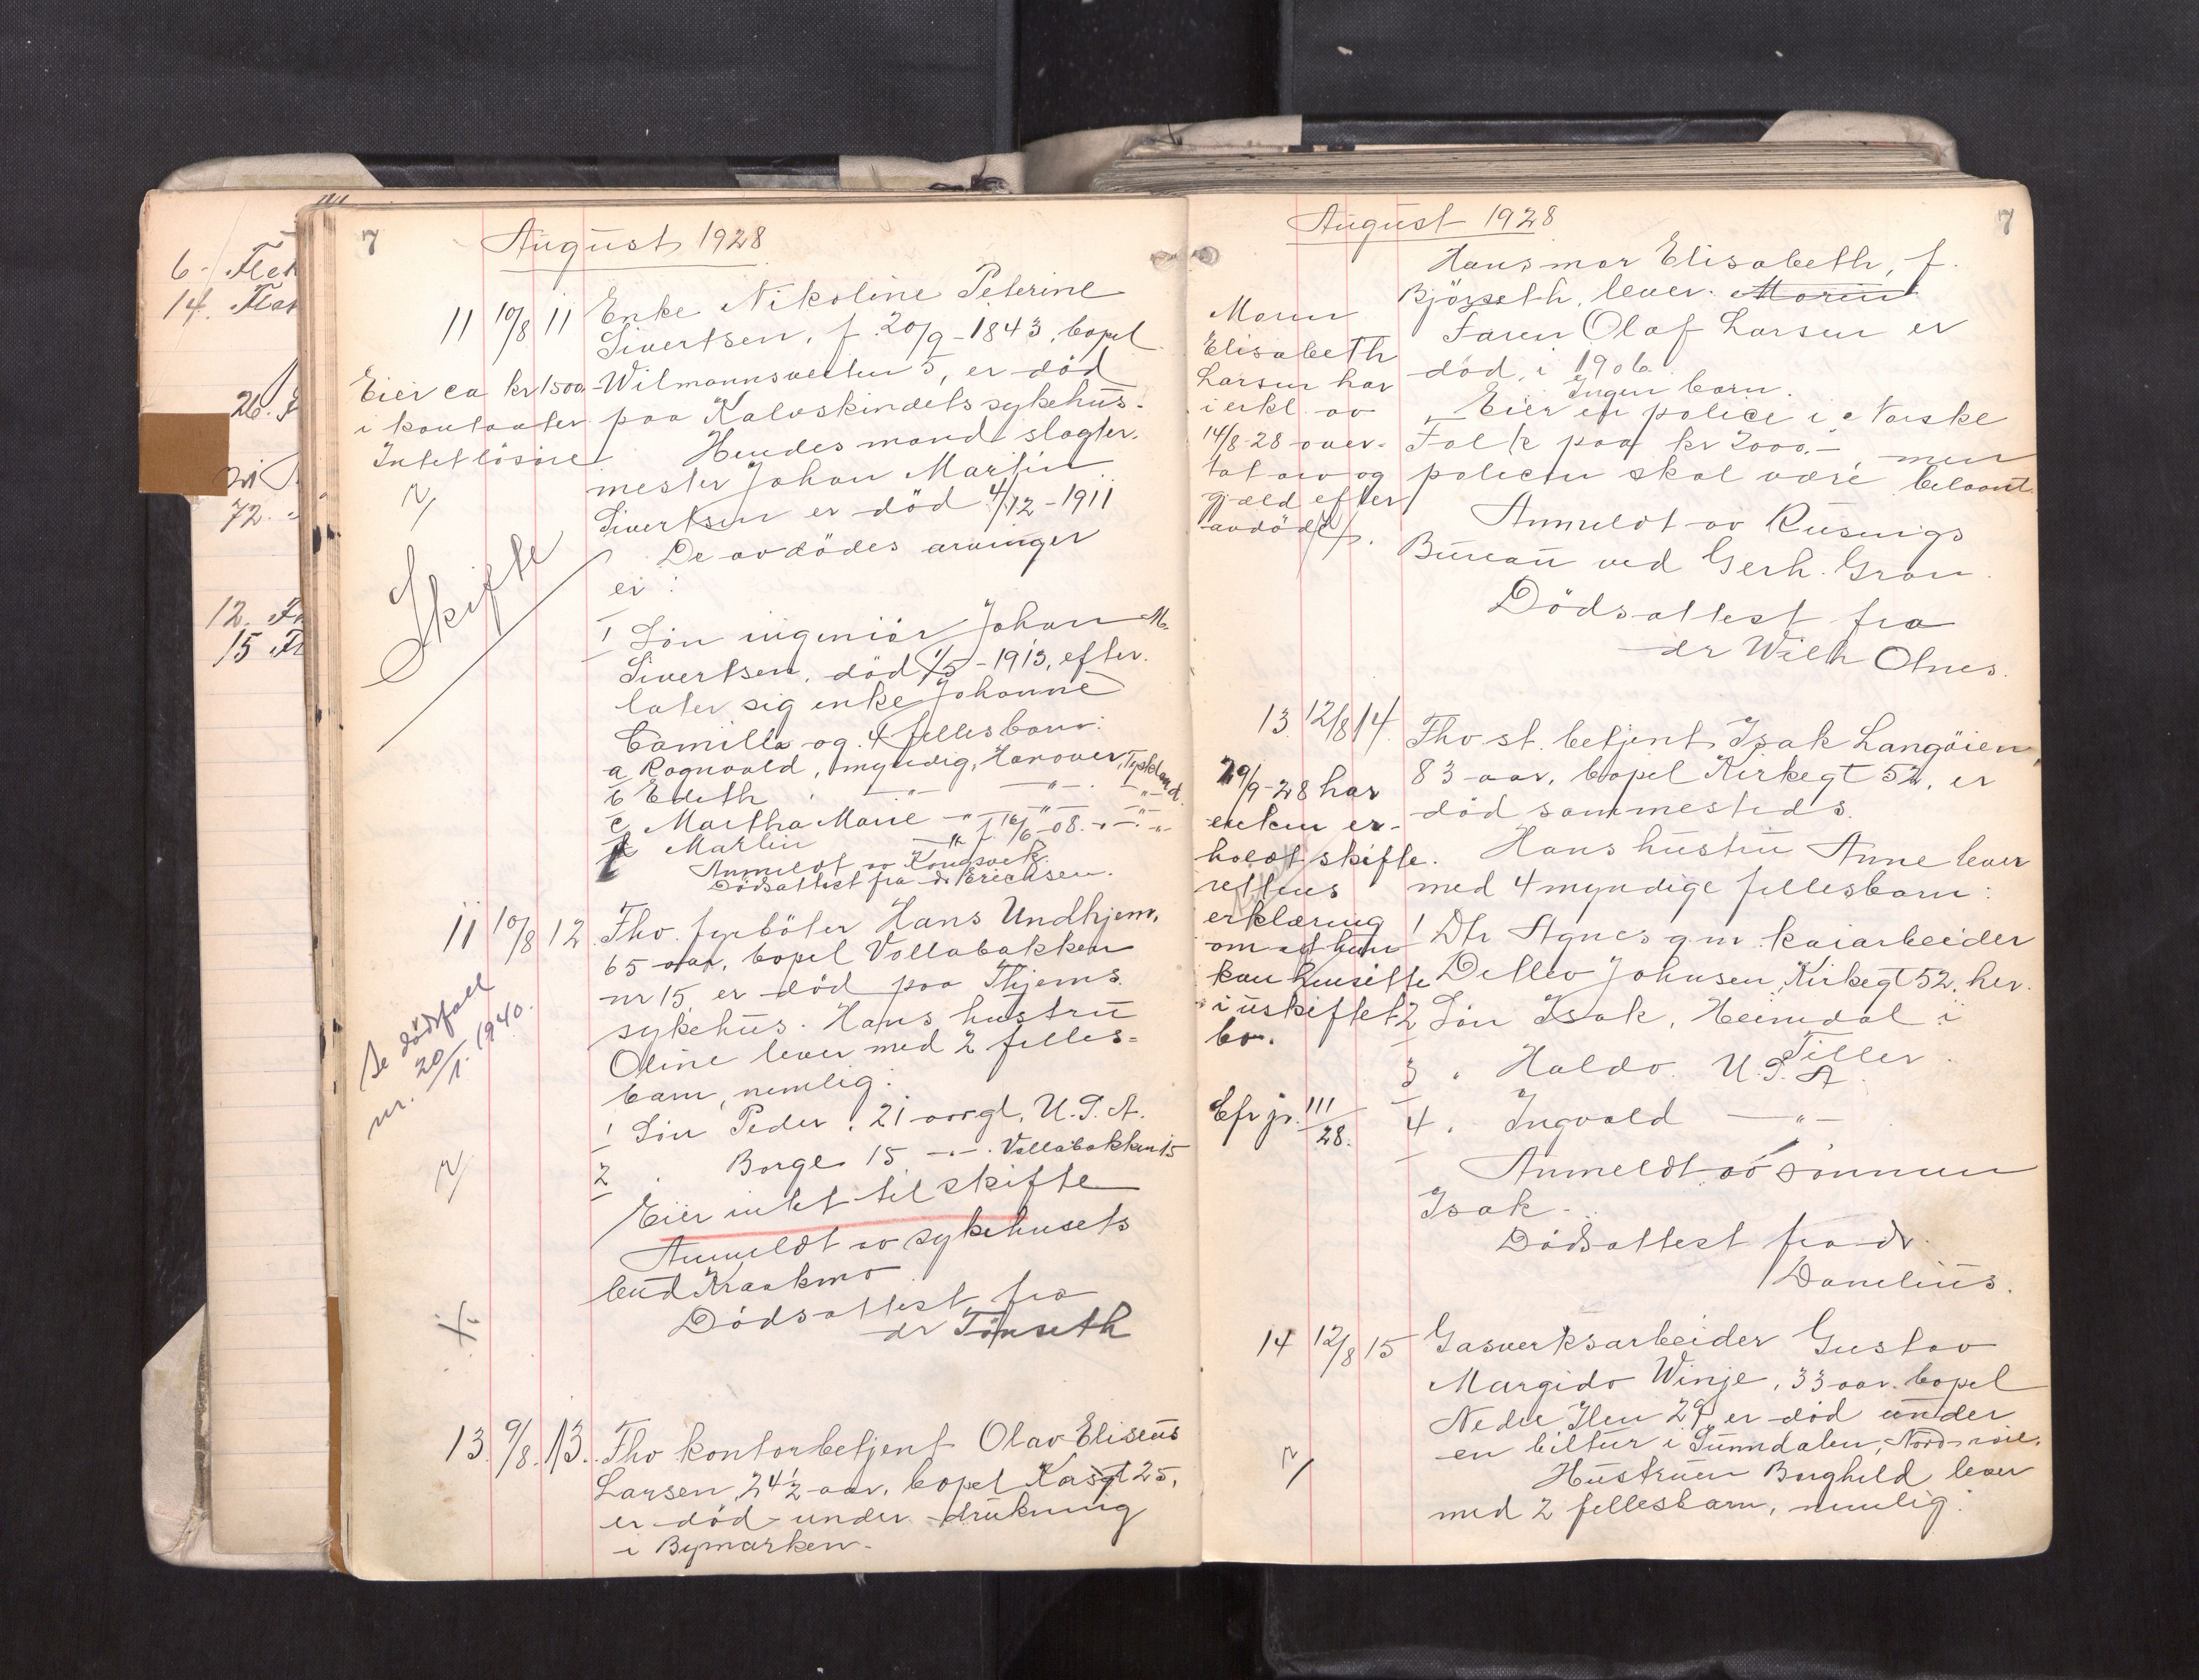 6 -
14.
26.
72.
12.
15
7
August 1928
11 10/8 11 Enke Nikoline Peterine
Sivertsen, f. 20/9 - 1843, bopel
Wilmannsveiten 5, er död
paa Kalvskindets sykehus.
Hendes mand slagter-
mester Johan Martin
Sivertsen er död 4/12 - 1911
De avdödes arvinger
er :
1 Sön ingeniör Johan M.
Sivertsen, död 1/5 - 1913, efter-
later sig enke Johanne
Camilla og 4 fellesbarn:
a Ragnvald, myndig, Hanover, Tyskland.
b Edith, -"- -"- -"-
c Martha Marie -"- -"- -"-
d Martin f. 16/6 - 08. -"- -"-
Anmeldt av Kongsvek.
Dödsattest fra dr Erichsen.
Eier ca kr 1500
i kontanter
Intet lösöre
Skifte
11 10/8 12. Fhv. fyrböter Hans Undhjem,
65 aar, bopel Vollabakken
nr 15, er död paa Thjems
sykehus. Hans hustru
Oline lever med 2 felles-
barn, nemlig:
1 Sön Peder, 21 aar gl, U.S.A.
2 " Borge 15 -"-. Vollabakken 15
Eier intet til skifte
Anmeldt av sykehusets
bud Kraakmo
Dödsattest fra
dr Tönseth
Se dödsfall
nr. 20/1. 1940.
13. 9/8. 13. Fhv kontorbetjent Olav Eliseus
Larsen, 24 1/2 aar, bopel Korsgt 25,
er död under drukning
i Bymarken.
August 1928
7
Hans mor Elisabeth, f.
Björseth, lever. Moren
Faren Olaf Larsen er
död i 1906.
Ingen barn.
Eier en police i Norske
Folk paa kr 2000,- men
policen skal være belaant.
Anmeldt av Rusnigs
Bureau ved Gerh. Gran.
Dödsattest fra
dr Wilh Olnes.
Moren
Elisabeth
Larsen har
i erkl. av
14/8-28 over-
tat arv og
gjæld efter
avdöde.
13. 12/8 14. Fhv st. betjent Isak Langöien,
83 aar, bopel Kirkegt 52, er
död sammesteds.
Hans hustru Anne lever
med 4 myndige fellesbarn :
1 Dtr Agnes g.m. kaiarbeider
Detlev Johnsen, Kirkegt 52, her.
2 Sön Isak, Heimdal i
Tiller.
3 " Haldo. U.S.A.
4 " Ingvald -"-
Anmeldt av sönnen
Isak.
Dödsattest fra dr.
Danelius.
29/9-28 har
enken er-
holdt skifte-
rettens
erklæring
om at hun
kan hensitte
i uskiftet
bo.
Cfr jr. 111/28.
14 12/8 15 Gasverksarbeider Gustav
Margido Winje, 33 aar. bopel
Nedre Ilen 29, er död under
en biltur i Sunndalen, Nordmöre.
Hustruen Borghild lever
med 2 fellesbarn, nemlig: